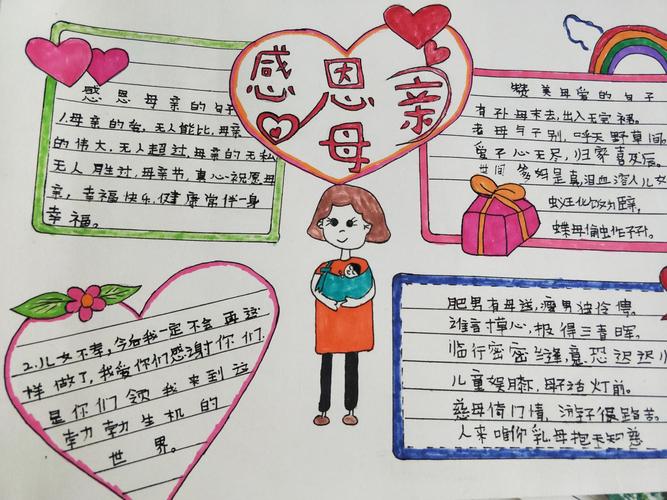 感恩母亲
感恩母亲的句子
1.母亲的爱,无人能比,母亲
的伟大,无人超过,母亲的无私
无人胜过,母亲节,衷心祝愿母
亲,幸福快乐,健康常伴一身
幸福。
赞美母爱的句子
有孙母未去,出入无完裙。
老母与子别,呼天野草间
爱子心无尽,归家喜及辰。
世间爹妈情最真,泪血溶入儿女
蝶母偷出作子孙。
2.儿女不孝,今后我一定不会再这
样做了,我爱你们感谢你们,
是你们领我来到这
勃勃生机的
世界。
肥男有母送,瘦男独伶俜。
谁言寸草心,报得三春晖。
临行密密缝,意恐迟迟
儿童娱膝,母子话灯前。
慈母倚门情,游子很路苦。